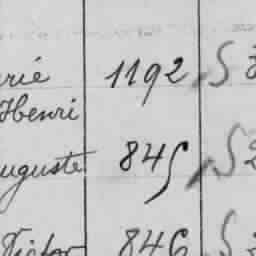 rié 1192 S 3
Henri
uguste 845 S 2
Victor 846 S